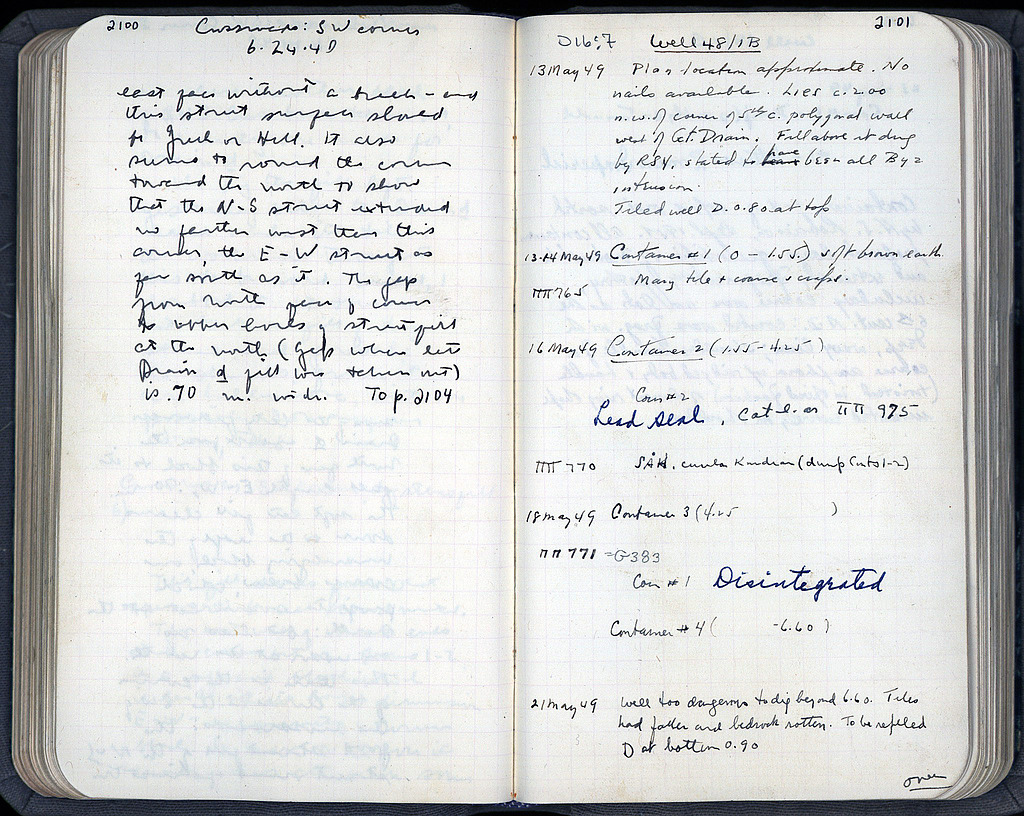 2100
Crossroads: SW corner
6.24.49
east goes without a break - and
this street surface sloped
to Greek or Hell. It also
seems to round the corner
toward the north to show
that the N-S street extended
no farther west than this
corner, the E-W street as
far south as it. The gap
from north face of corner
to upper levels of street fill
at the north (gap where late
Drain & fill was taken out)
is .70 m. wide. To p. 2104
2101
D16:7 Well 48/1B
13 May 49 Plan location approximate. No
nails available. Lies c. 2.00
n.w. of corner of 5th c. polygonal wall
west of Gt. Drain. Fill above it dug
by RSY, stated to have been all Byz
intrusion.
Tiled well D. 0.80 at top
13-14 May 49 Container #1 (0 - 1.55.) soft brown earth
Many tile & coarse scraps.
ΠΠ 765
16 May 49 Container 2 (1.55-4.25)
Coin #2
Lead seal, cat'd. as ΠΠ 975
ΠΠ 770 SAH. (dump Cont. 1-2)
18 May 49 Container 3 (4.25 )
ΠΠ 771 = G383
Coin #1 Disintegrated
Container #4 ( -6.60)
21 May 49 Well too dangerous to dig beyond 6.60. Tiles
had fallen and bedrock rotten. To be refilled
D at bottom 0.90
over